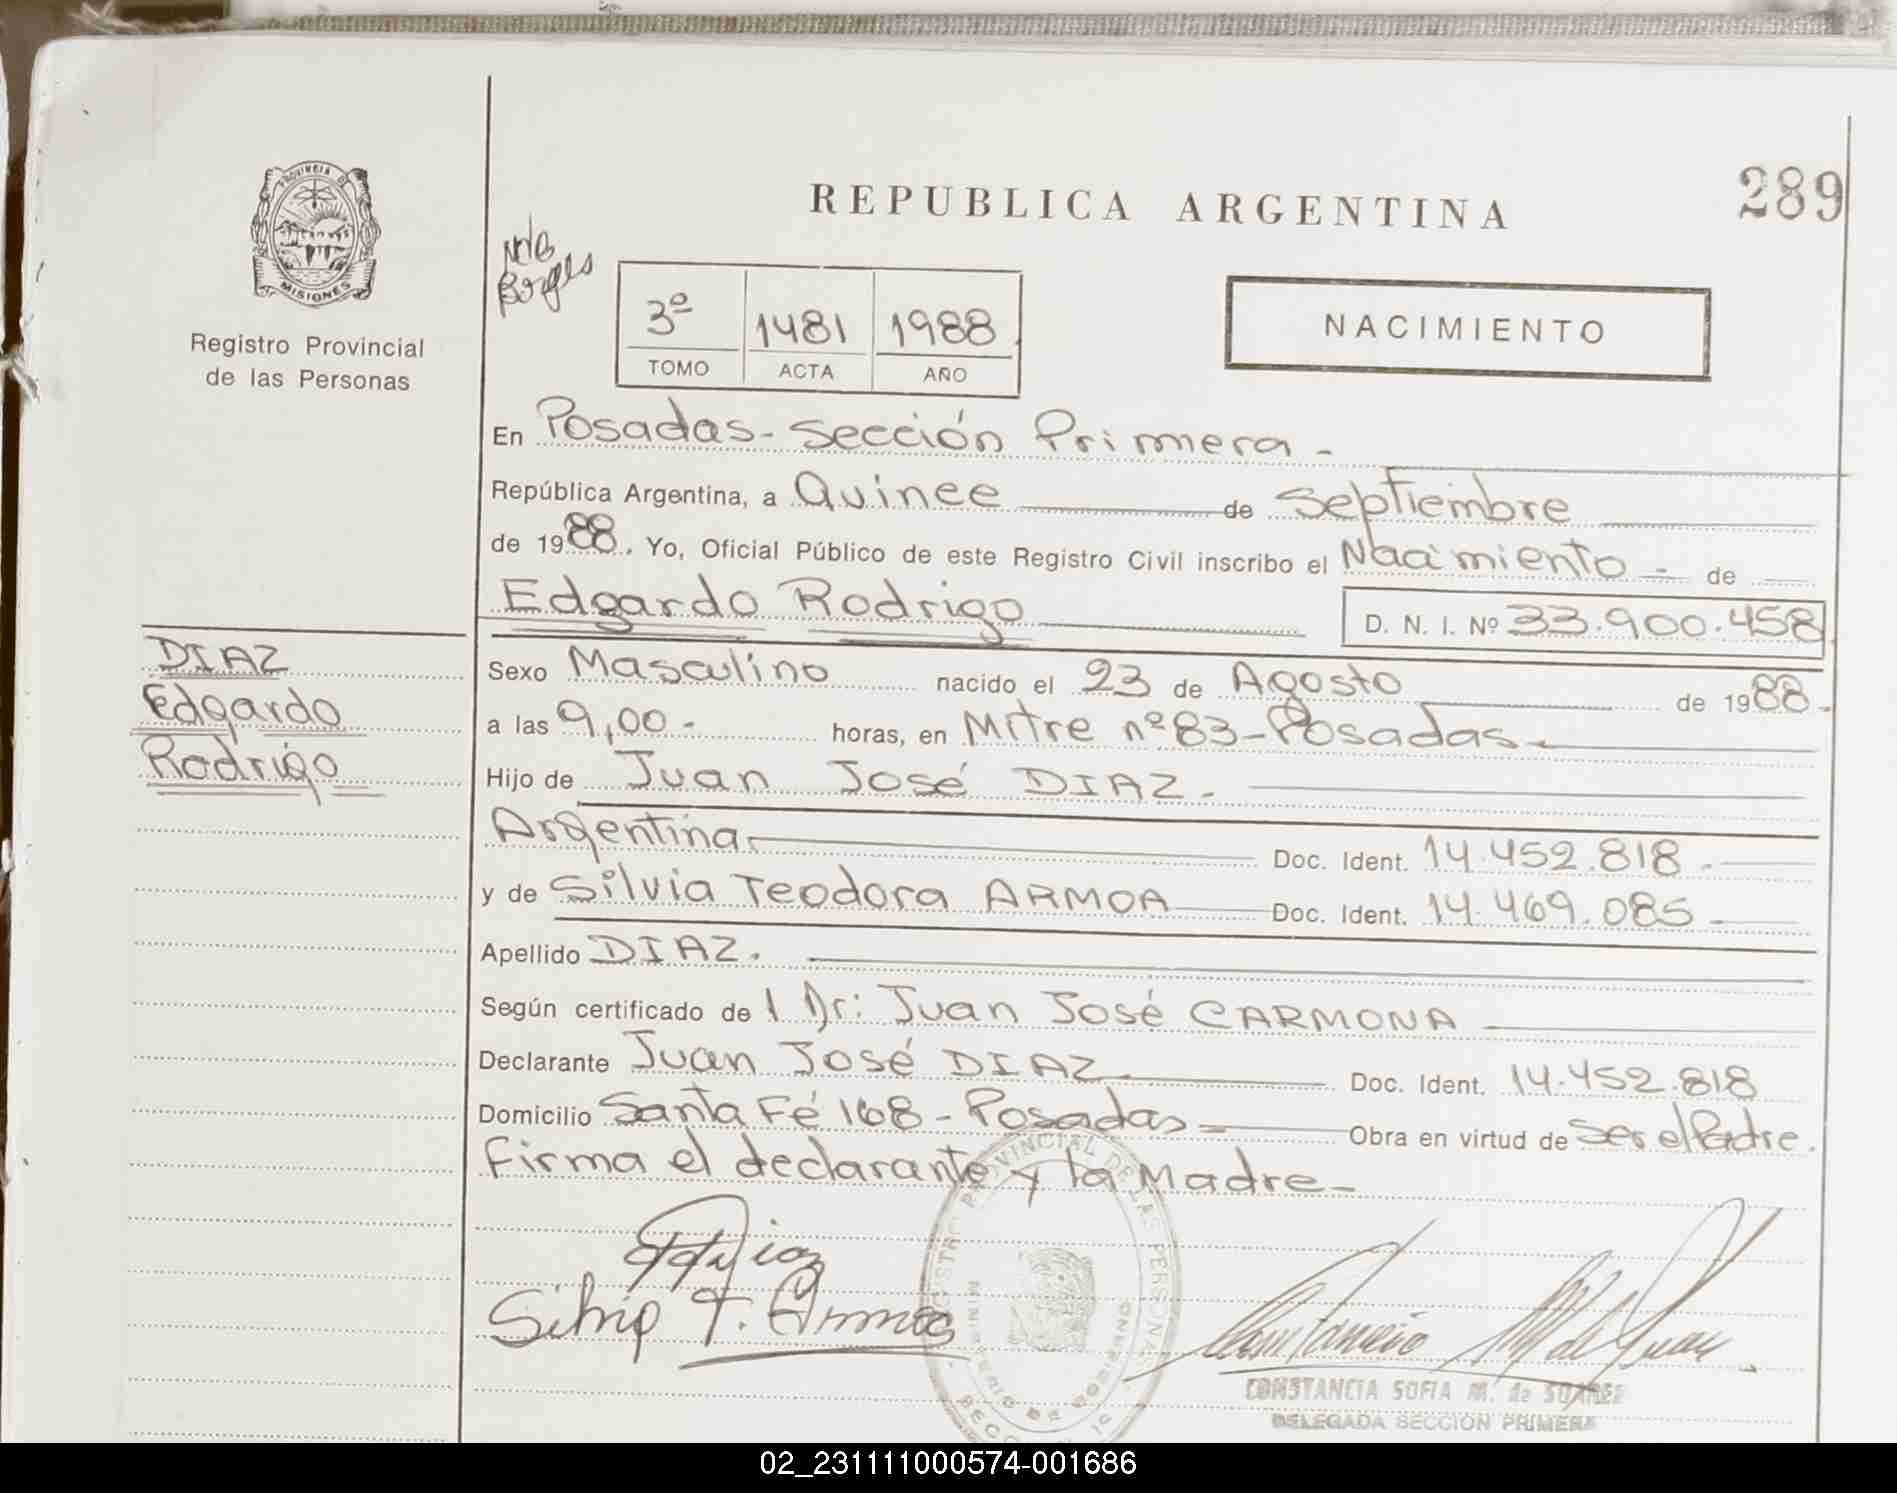 REPUBLICA ARGENTINA
289
PROVINCIA D
MISIONES
Registro Provincial
de las Personas
Borges
3º 1481 1988
TOMO ACTA AÑO
NACIMIENTO
En Posadas - Sección Primera -
República Argentina, a Quince de Septiembre
de 1988, Yo, Oficial Público de este Registro Civil inscribo el Nacimiento - de
Edgardo Rodrigo D. N. I. Nº 33.900.458
DIAZ
Edgardo
Rodrigo
Sexo Masculino nacido el 23 de Agosto de 1988.
a las 9,00 - horas, en Mitre nº 83 - Posadas -
Hijo de Juan José DIAZ.
Argentina Doc. Ident. 14.452.818 -
y de Silvia Teodora ARMOA Doc. Ident. 14.469.085 -
Apellido DIAZ.
Según certificado de l Dr: Juan José CARMONA
Declarante Juan José DIAZ Doc. Ident. 14.452.818
Domicilio Santa Fé 168 - Posadas - Obra en virtud de Ser el Padre.
Firma el declarante y la Madre -
Diaz
Silvia T. Armoa
REGISTRO PROVINCIAL DE LAS PERSONAS
MINISTERIO DE GOBIERNO
CONSTANCIA SOFIA M. de SUAREZ
DELEGADA SECCION PRIMERA
02_231111000574-001686